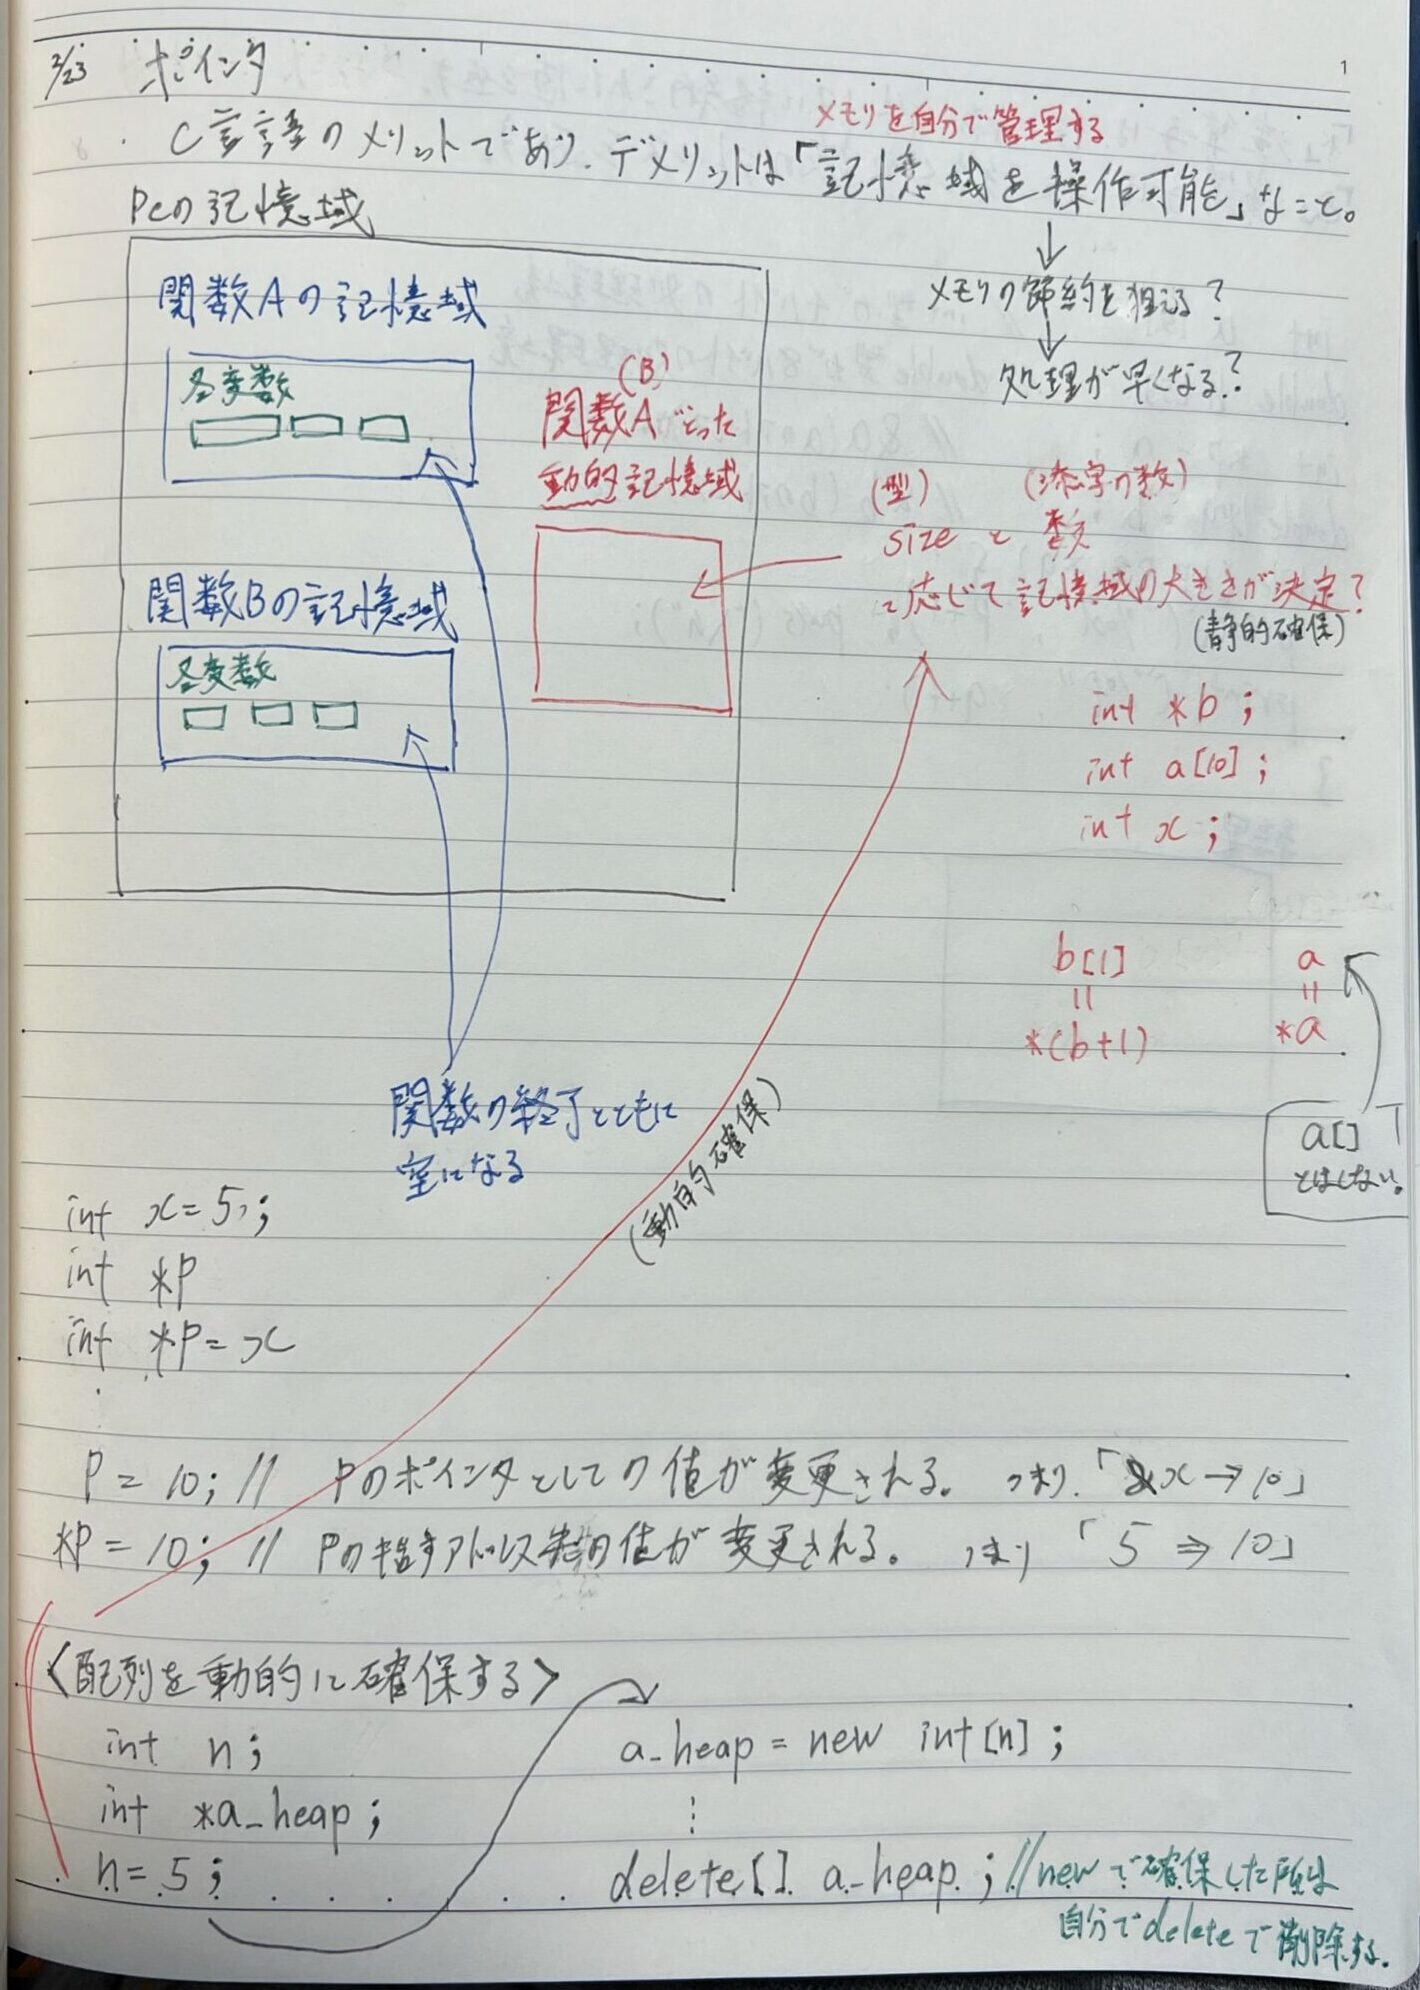 2/23 ポインタ
1
メモリを自分で管理する
・C言語のメリットであり、デメリットは「記憶域を操作可能」なこと。
PCの記憶域
メモリの節約を狙える?
処理が早くなる?
関数Aの記憶域
各変数
(B)
関数Aでとった
動的記憶域
(型) (添字の数)
size と 数
に応じて記憶域の大きさが決定?
(静的確保)
関数Bの記憶域
各変数
int *b;
int a[10];
int x;
b[1] a
= =
*(b+1) *a
a[]
とはしない。
関数の終了とともに
空になる
(動的確保)
int x=5;
int *p
int *p=x
p = 10; // pのポインタとしての値が変更される。つまり、「&x→10」
*p = 10; // pの指すアドレス先の値が変更される。つまり「5⇒10」
<配列を動的に確保する>
int n;
int *a_heap;
n=5;
a_heap = new int[n];
⋮
delete[] a_heap; //newで確保した所は
自分でdeleteで削除する。